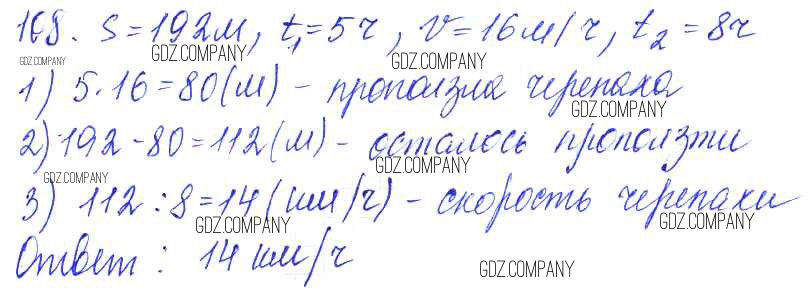 168. S=192м, t₁=5ч, v=16м/ч, t₂=8ч
GDZ.COMPANY GDZ.COMPANY GDZ.COMPANY
1) 5·16=80(м) - проползла черепаха
GDZ.COMPANY
2) 192-80=112(м) - осталось проползти
GDZ.COMPANY GDZ.COMPANY
3) 112:8=14(км/ч) - скорость черепахи
GDZ.COMPANY GDZ.COMPANY
Ответ: 14км/ч
GDZ.COMPANY